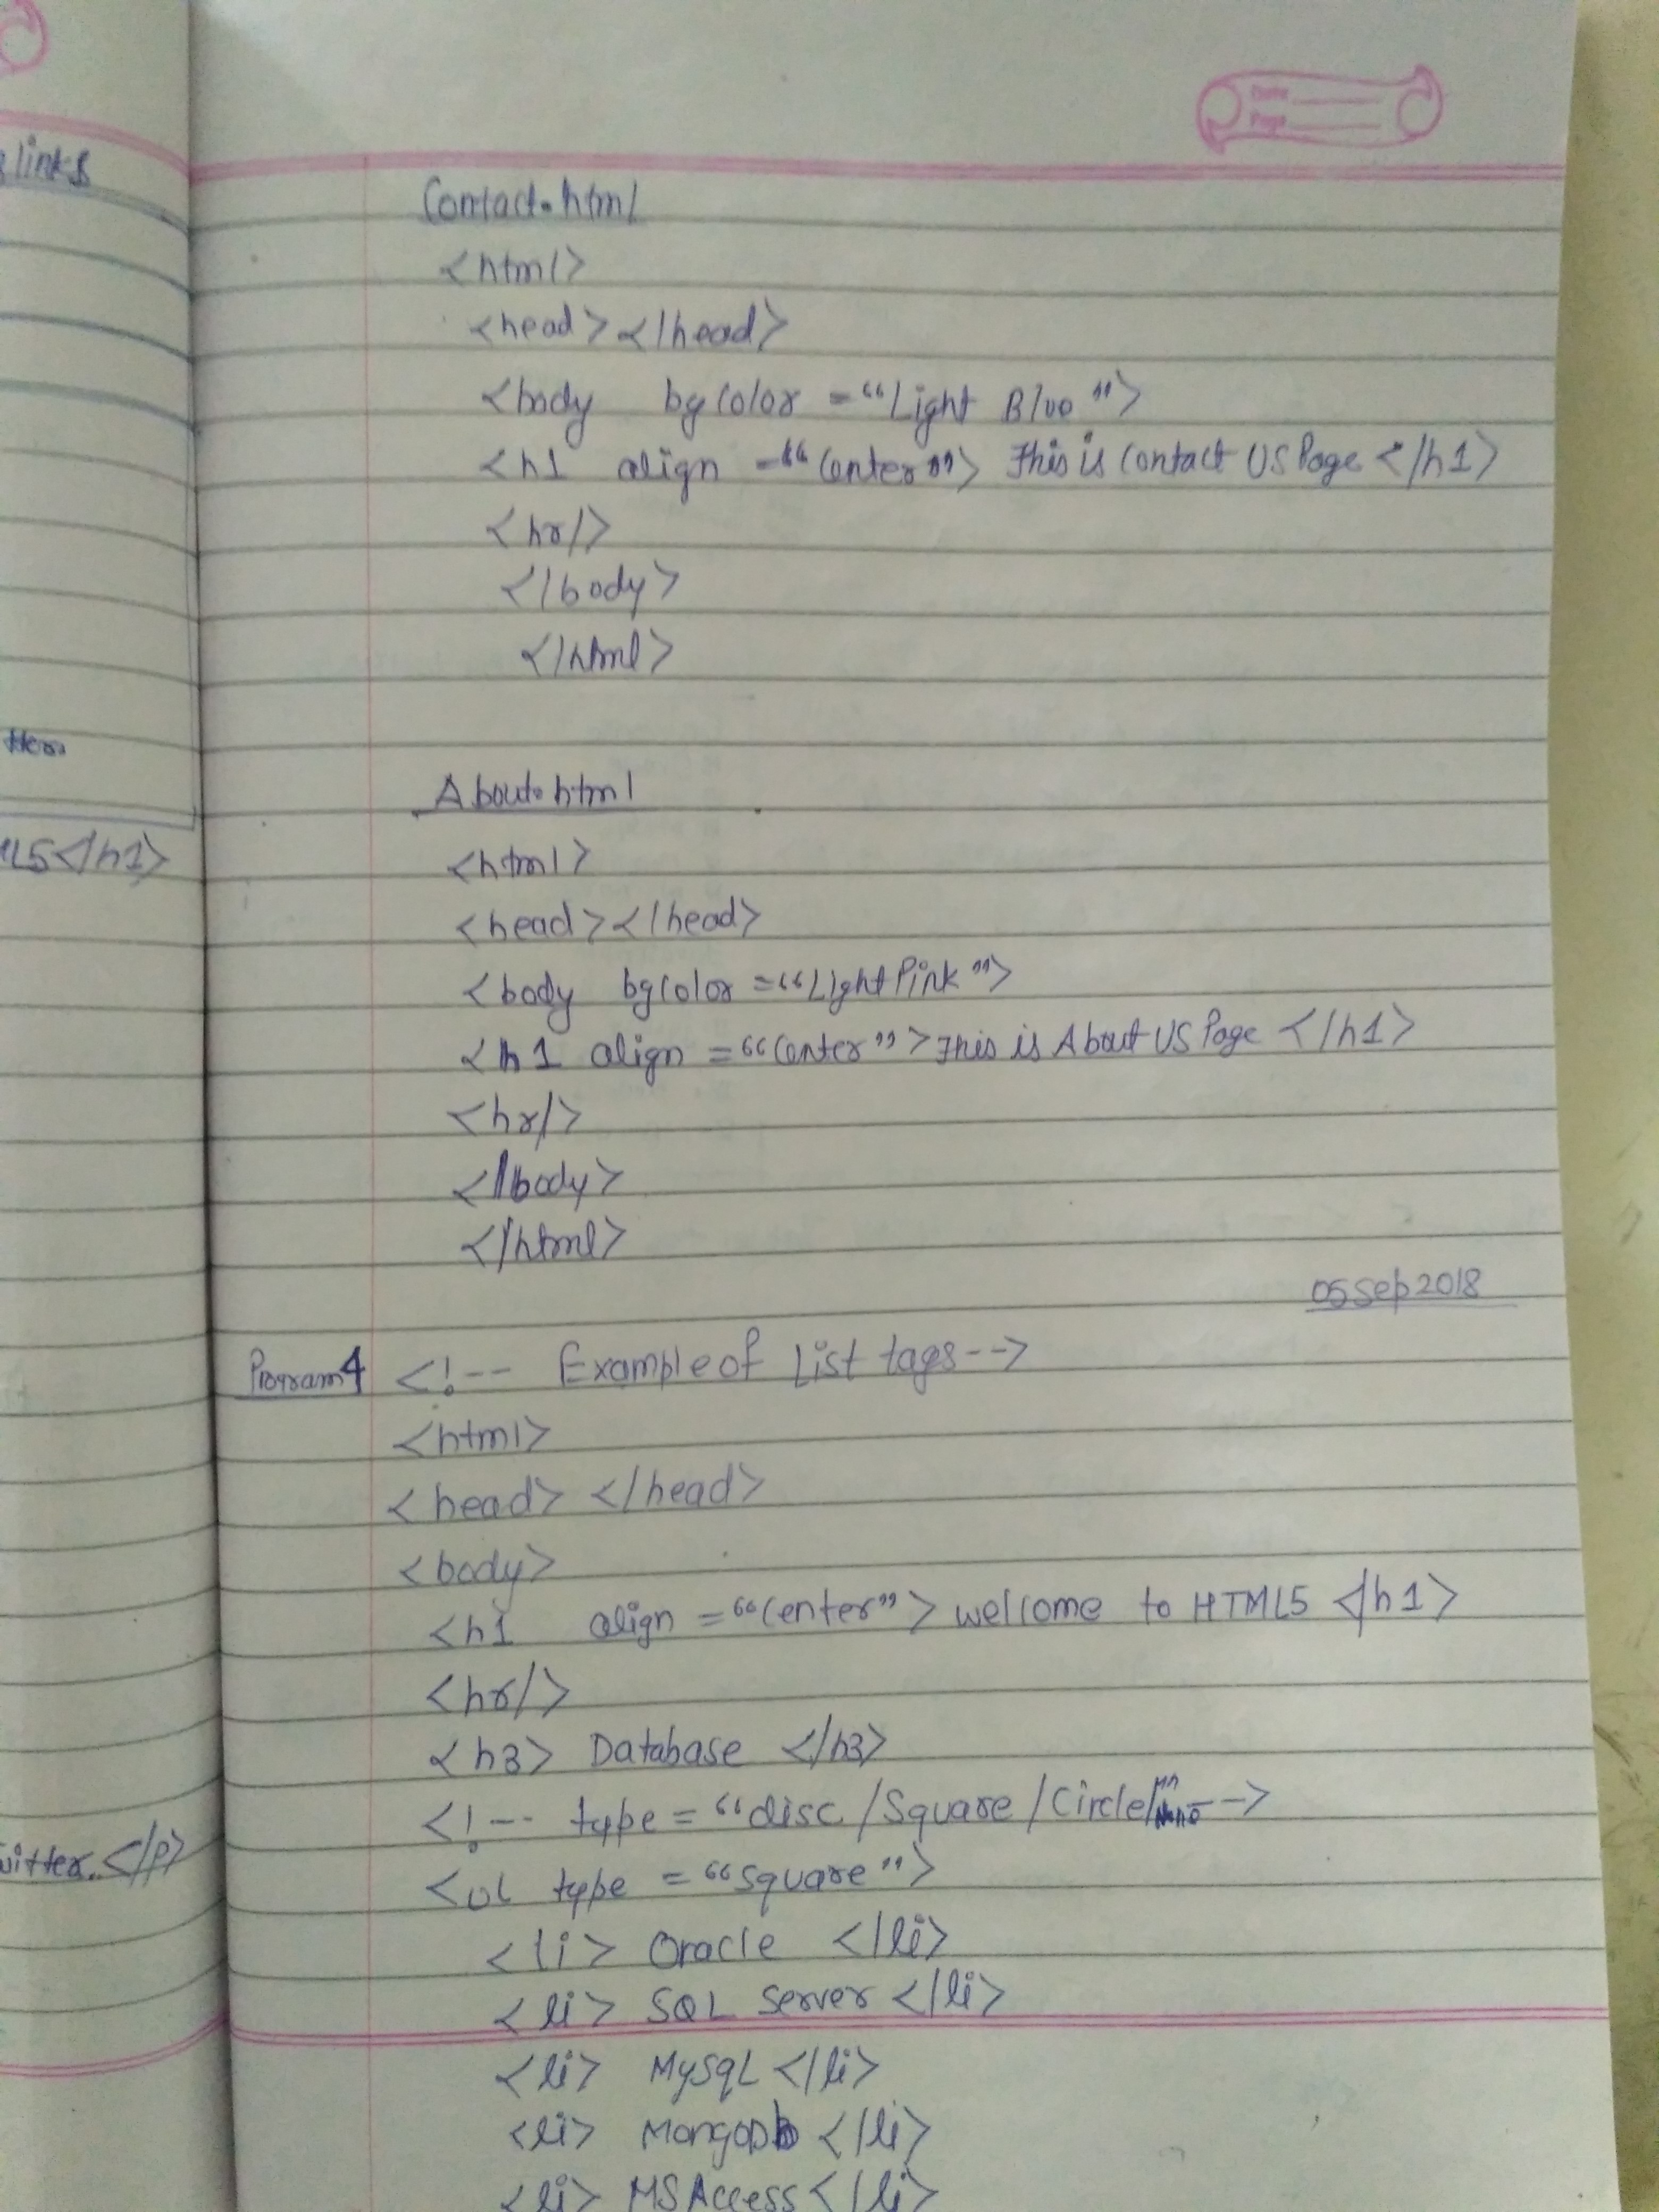 links
ML5</h1>
</p>
Date
Page
Contact.html
<html>
<head></head>
<body bgcolor = “Light Blue”>
<h1 align =“Center”> This is Contact US Page </h1>
<hr/>
</body>
</html>
About.html
<html>
<head></head>
<body bgcolor =“LightPink”>
<h1 align =“Center”>This is About US Page </h1>
<hr/>
</body>
</html>
05 Sep 2018
Program 4 <!-- Example of List tags-->
<html>
<head> </head>
<body>
<h1 align =“Center”> welcome to HTML5 </h1>
<hr/>
<h3> Database </h3>
<!-- type = “disc/Square/Circle/ -->
<ul type = “square”>
<li> Oracle </li>
<li> SQL Server </li>
<li> MySqL </li>
<li> MongoDb </li>
<li> MS Access </li>